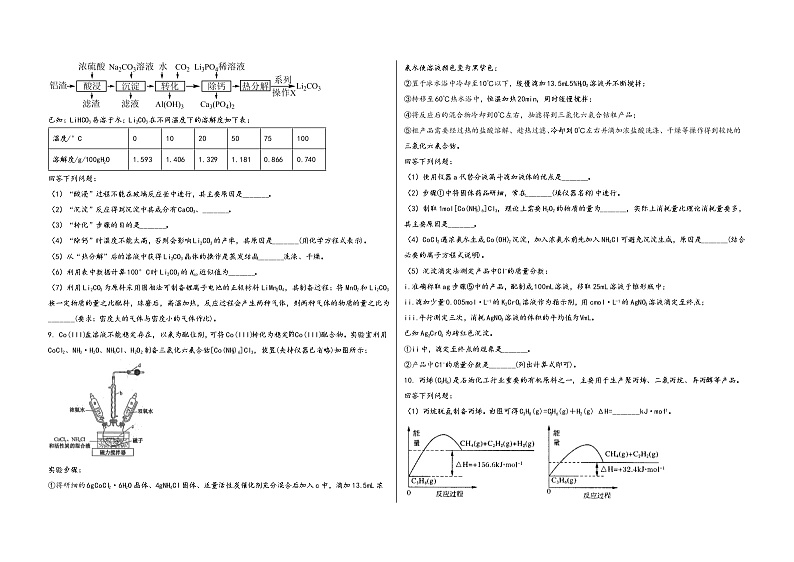 浓硫酸 Na2CO3溶液 水 CO2 Li3PO4稀溶液
铝渣 酸浸 沉淀 转化 除钙 热分解 系列操作X Li2CO3
滤渣 滤液 Al(OH)3 Ca3(PO4)2
已知：LiHCO3易溶于水；Li2CO3在不同温度下的溶解度如下表：
温度/°C 0 10 20 50 75 100
溶解度/g/100gH2O 1.593 1.406 1.329 1.181 0.866 0.740
回答下列问题：
（1）“酸浸”过程不能在玻璃反应釜中进行，其主要原因是_______。
（2）“沉淀”反应得到沉淀中其成分有CaCO3、_______。
（3）“转化”步骤的目的是_______。
（4）“除钙”时温度不能太高，否则会影响Li2CO3的产率，其原因是_______(用化学方程式表示)。
（5）从“热分解”后的溶液中获得Li2CO3晶体的操作是蒸发结晶_______洗涤、干燥。
（6）利用表中数据计算100°C时Li2CO3的Ksp近似值为_______。
（7）利用Li2CO3为原料采用固相法可制备锂离子电池的正极材料LiMn2O4，其制备过程：将MnO2和Li2CO3
按一定物质的量之比配料，球磨后，高温加热，反应过程会产生两种气体，则两种气体的物质的量之比为
_______(要求：密度大的气体与密度小的气体作比)。
9. Co(III)盐溶液不能稳定存在，以氨为配位剂，可将Co(III)转化为稳定的Co(III)配合物。实验室利用
CoCl2、NH3·H2O、NH4Cl、H2O2制备三氯化六氨合钴[Co(NH3)6]Cl3，装置(夹持仪器已省略)如图所示：
d
b
浓氨水 双氧水
a
c
CoCl2、NH4Cl和活性炭的混合液 磁子
磁力搅拌器
实验步骤：
①将研细的6gCoCl2·6H2O晶体、4gNH4Cl固体、适量活性炭催化剂充分混合后加入c中，滴加13.5mL浓
氨水使溶液颜色变为黑紫色；
②置于冰水浴中冷却至10℃以下，缓慢滴加13.5mL5%H2O2溶液并不断搅拌；
③转移至60℃热水浴中，恒温加热20min，同时缓慢搅拌；
④将反应后的混合物冷却到0℃左右，抽滤得到三氯化六氨合钴粗产品；
⑤粗产品需要经过热的盐酸溶解、趁热过滤、冷却到0℃左右并滴加浓盐酸洗涤、干燥等操作得到较纯的
三氯化六氨合钴。
回答下列问题：
（1）使用仪器a代替分液漏斗滴加液体的优点是_______。
（2）步骤①中将固体药品研细，常在_______(填仪器名称)中进行。
（3）制取1mol[Co(NH3)6]Cl3，理论上需要H2O2的物质的量为_______，实际上消耗量比理论消耗量要多，
其主要原因是_______。
（4）CoCl2遇浓氨水生成Co(OH)2沉淀，加入浓氨水前先加入NH4Cl可避免沉淀生成，原因是_______(结合
必要的离子方程式说明)。
（5）沉淀滴定法测定产品中Cl-的质量分数：
i.准确称取ag步骤⑤中的产品，配制成100mL溶液，移取25mL溶液于锥形瓶中；
ii.滴加少量0.005mol·L-1的K2CrO4溶液作为指示剂，用cmol·L-1的AgNO3溶液滴定至终点；
iii.平行测定三次，消耗AgNO3溶液的体积的平均值为VmL。
已知Ag2CrO4为砖红色沉淀。
①ii中，滴定至终点的现象是_______。
②产品中Cl-的质量分数是_______(列出计算式即可)。
10. 丙烯(C3H6)是石油化工行业重要的有机原料之一，主要用于生产聚丙烯、二氯丙烷、异丙醇等产品。
回答下列问题：
（1）丙烷脱氢制备丙烯。由图可得C3H8(g)=C3H6(g)+H2(g) ΔH=_______kJ·mol-1。
能量
CH4(g)+C2H2(g)+H2(g)
△H=+156.6kJ·mol-1
C3H8(g)
0 反应过程
能量
CH4(g)+C2H2(g)
△H=+32.4kJ·mol-1
C3H6(g)
0 反应过程